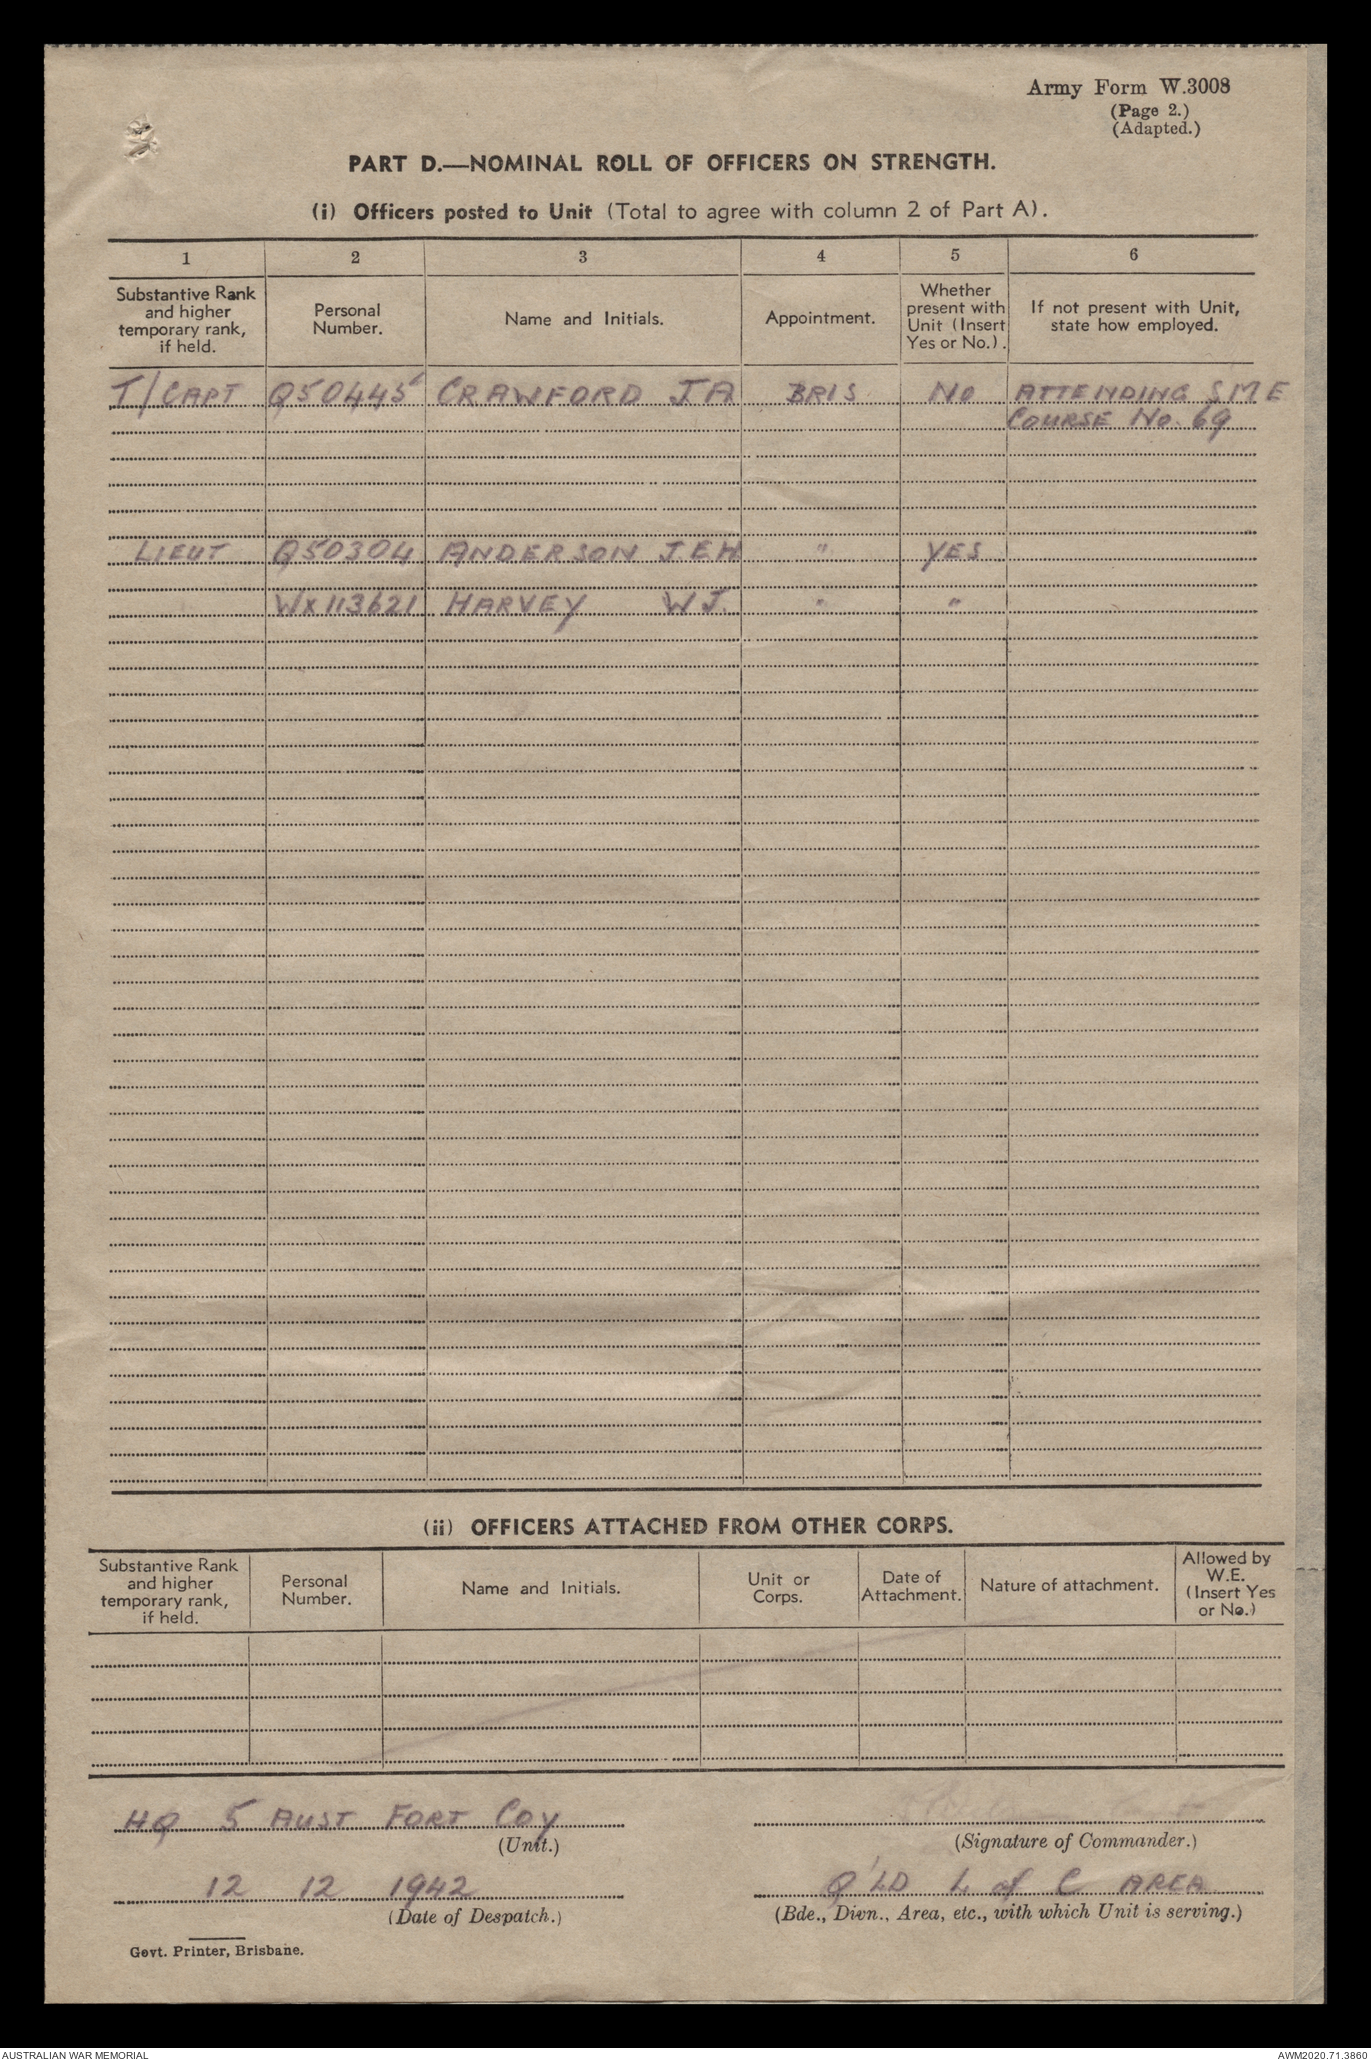 Army Form W.3008
(Page 2.)
(Adapted.)
PART D.—NOMINAL ROLL OF OFFICERS ON STRENGTH.
(i) Officers posted to Unit (Total to agree with column 2 of Part A).
1 2 3 4 5 6
Substantive Rank and higher temporary rank, if held. Personal Number. Name and Initials. Appointment. Whether present with Unit (Insert Yes or No.). If not present with Unit, state how employed.
T/CAPT Q50445 CRAWFORD J A BRIS No ATTENDING S M E
COURSE No. 69
LIEUT Q50304 ANDERSON J.E.H " YES
WX113621 HARVEY W J. " "
(ii) OFFICERS ATTACHED FROM OTHER CORPS.
Substantive Rank and higher temporary rank, if held. Personal Number. Name and Initials. Unit or Corps. Date of Attachment. Nature of attachment. Allowed by W.E. (Insert Yes or No.)
HQ 5 AUST FORT COY
(Unit.)
(Signature of Commander.)
12 12 1942
(Date of Despatch.)
Q'LD L of C AREA
(Bde., Divn., Area, etc., with which Unit is serving.)
Govt. Printer, Brisbane.
AUSTRALIAN WAR MEMORIAL
AWM2020.71.3860